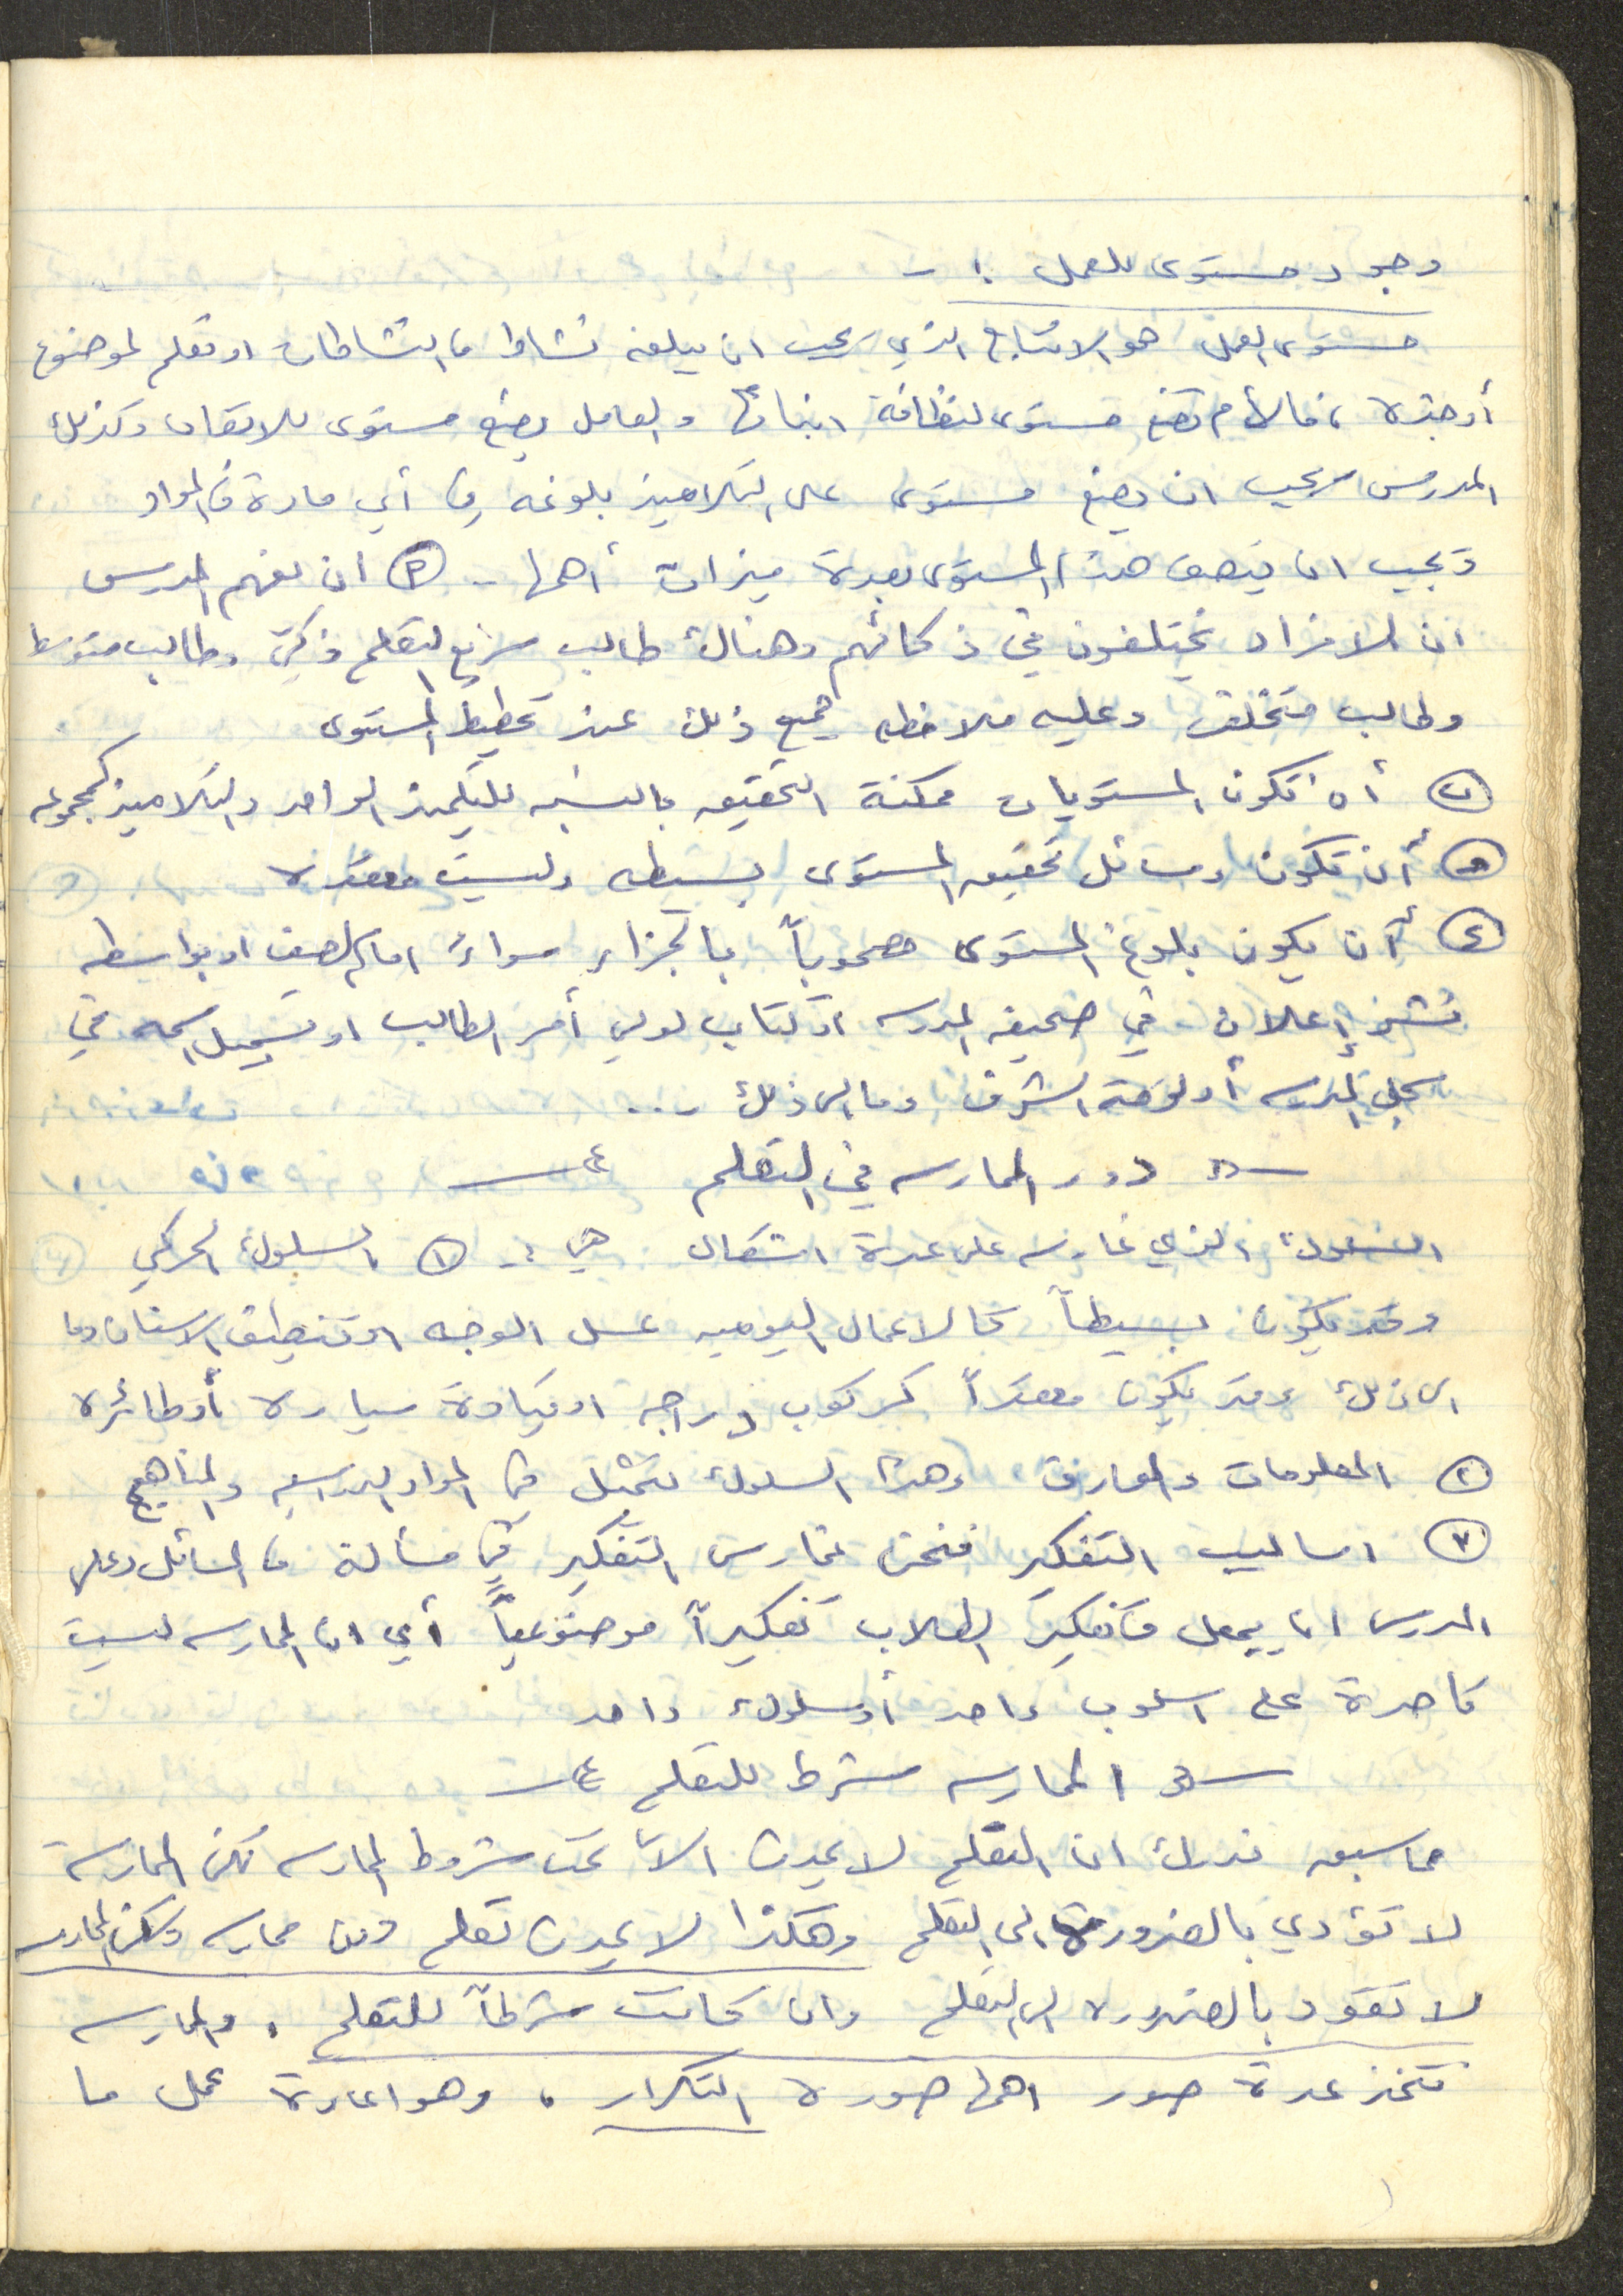 وجود مستوى للعمل :-
مستوى العمل هو الانتاج الذي يجب ان يبلغه نشاط من النشاطات او تعلم لموضوع
أو خبرة ، فالأم تضع مستوى لنظافة ابنائها والعامل يضع مستوى للاتقان وكذلك
المدرس يجب ان يضع مستوى على التلاميذ بلوغه في أي مادة من المواد
ويجب ان يتصف هذا المستوى بعدة ميزات أهمها - (أ) ان يفهم المدرس
ان الافراد يختلفون في ذكائهم وهناك طالب سريع التعلم ذكي وطالب متوسط
وطالب متخلف وعليه ملاحظه جميع ذلك عند تخطيط المستوى
(ب) أن تكون المستويات ممكنة التحقيق بالنسبه للتلميذ الواحد والتلاميذ كمجموعه
(ج) أن تكون وسائل تحقيق المستوى بسيطه وليست معقده
(د) أن يكون بلوغ المستوى مصحوباً بالجزاء سواء امام الصف او بواسطه
نشر إعلان في صحيفه المدرسه او كتاب لولي أمر الطالب او تسجيل اسمه في
سجل المدرسه أو لوحة الشرف وما الى ذلك ...
دور الممارسه في التعلم
السلوك الذي نمارسه على عدة اشكال هي :- (١) السلوك الحركي
وقد يكون بسيطاً كالاعمال اليوميه غسل الوجه او تنظيف الاسنان وما
الى ذلك وقد يكون معقداً كركوب دراجه او قيادة سيارة أو طائرة
(٢) المعلومات والمعارف وهذا السلوك يتمثل في المواد الدراسيه والمناهج
(٣) اساليب التفكير فنحن نمارس التفكير في مسألة من المسائل وعلى
المدرس ان يجعل من تفكير الطلاب تفكيراً موضوعياً أي ان الممارسه ليست
قاصرة على اسلوب واحد أو سلوك واحد
الممارسه شرط للتعلم
مما سبق ندرك ان التعلم لا يحدث الا تحت شروط الممارسه لكن الممارسة
لا تؤدي بالضرورة الى التعلم وهكذا لا يحدث تعلم دون ممارسه ولكن الممارسه
لا تقود بالضرورة الى التعلم وان كانت شرطاً للتعلم . والممارسه
تتخذ عدة صور اهمها صورة التكرار ، وهو اعادة عمل ما